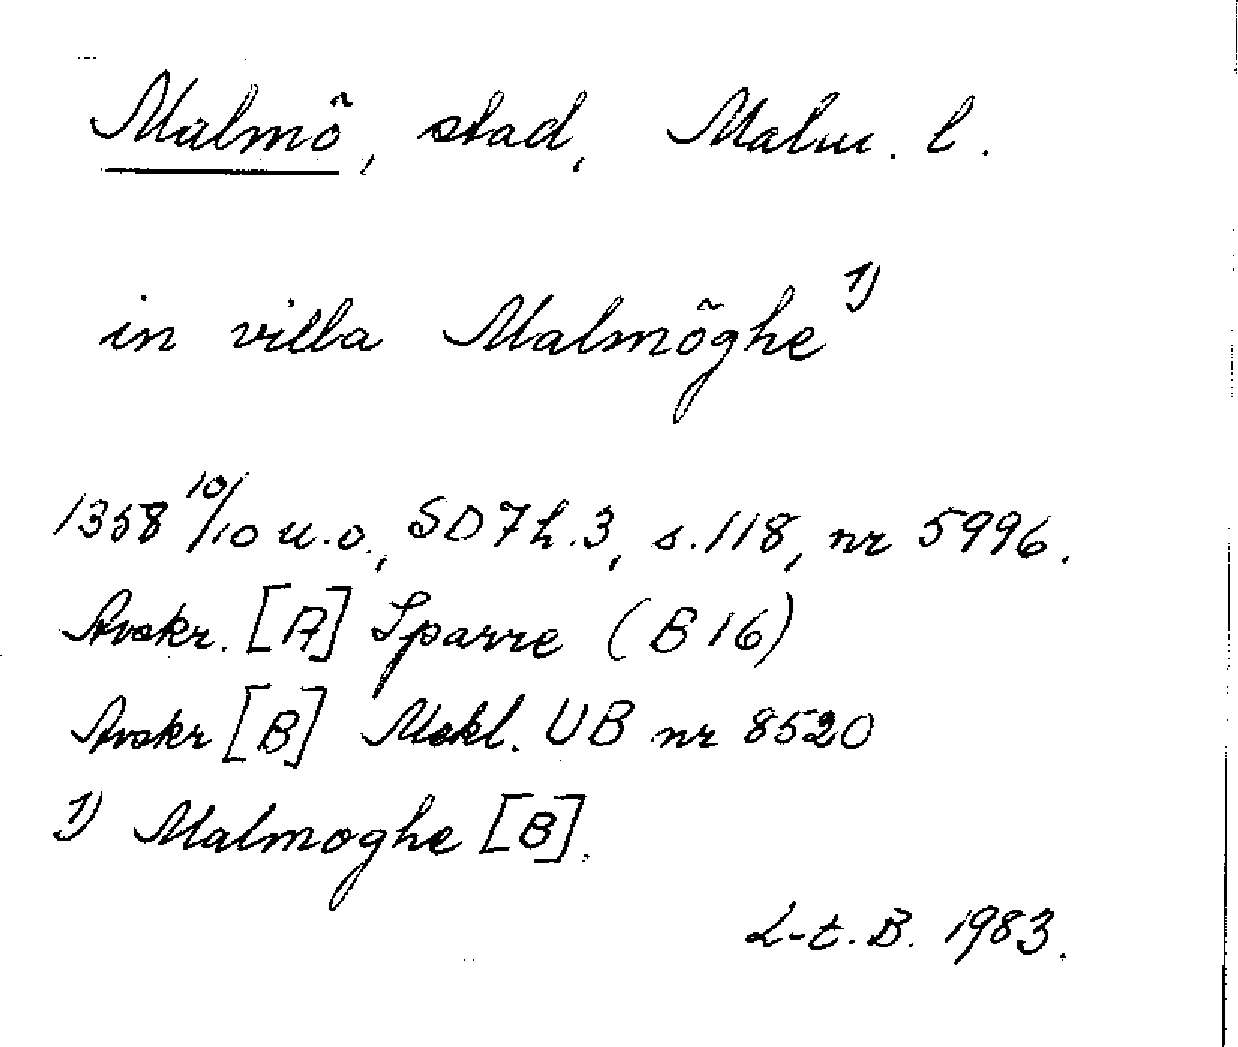 Malmö, stad, Malm. l.
in villa Malmöghe 1)
1358 10/10 u.o., SD 7 h.3, s.118, nr 5996.
Avskr. [A] Sparre (B 16)
Avskr [B] Mekl. UB nr 8520
1) Malmoghe [B].
L-t. B. 1983.